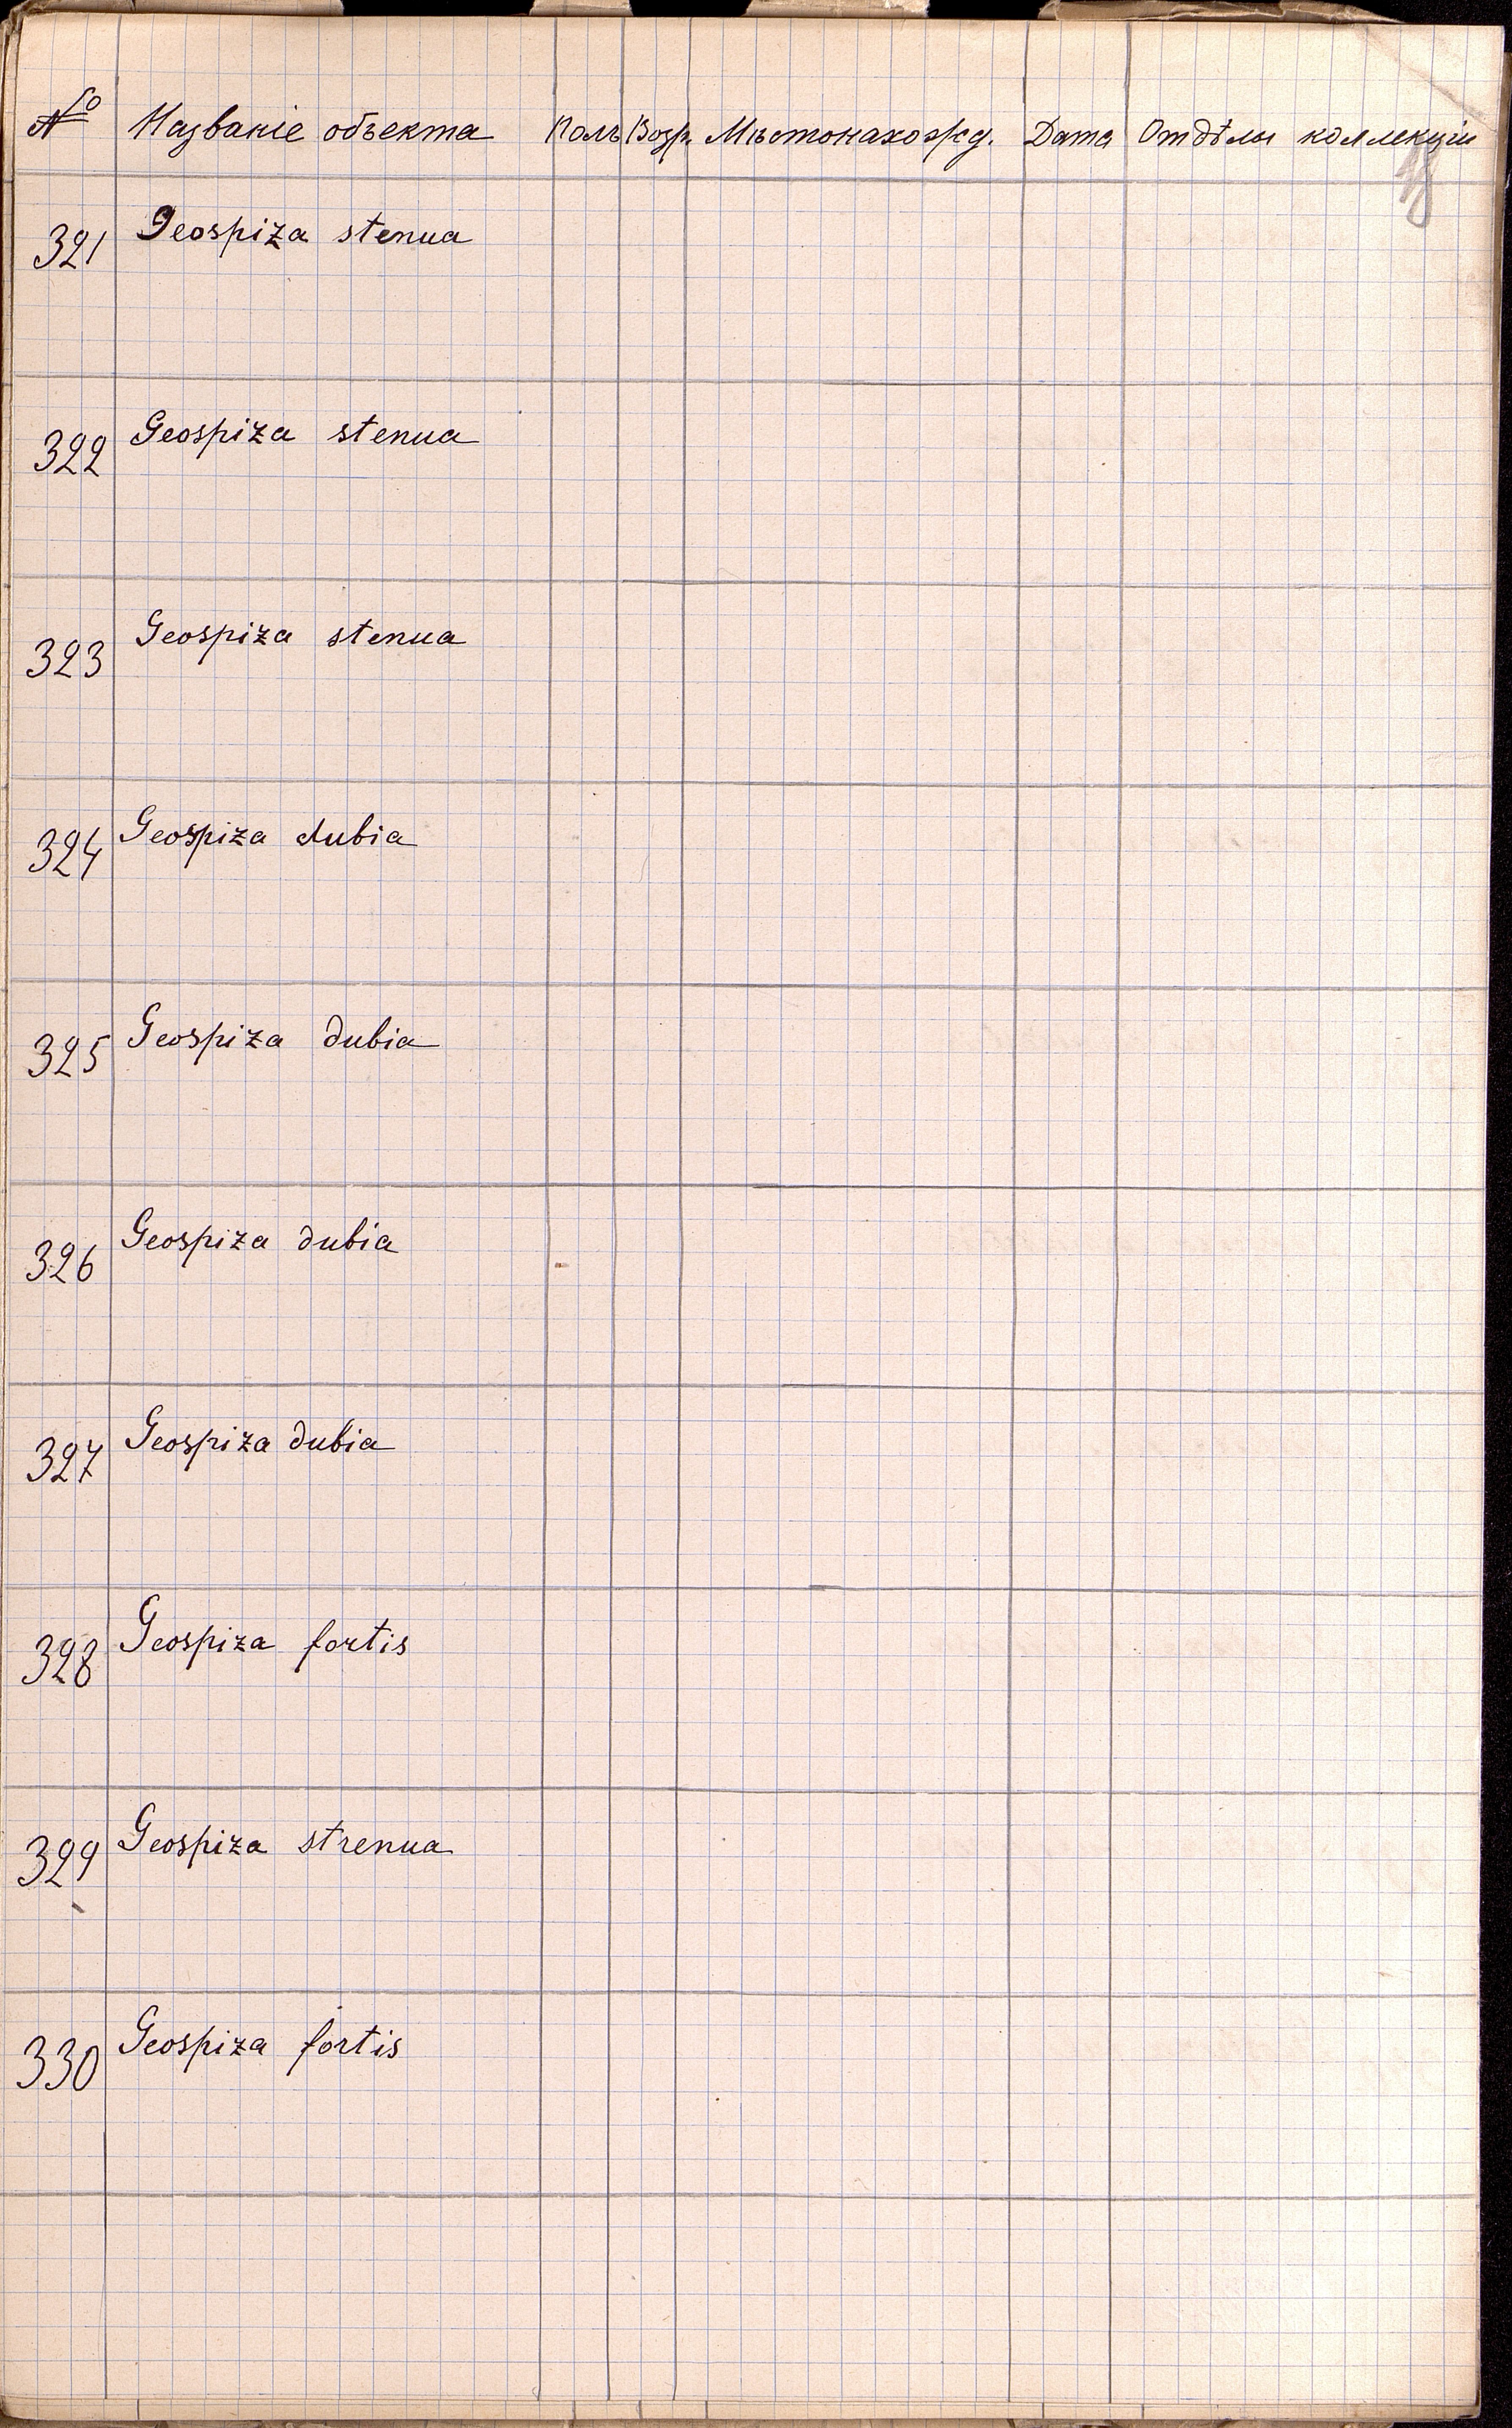 № Названіе объекта Полъ Возр. Мѣстонахожд. Дата Отдѣлы коллекціи
18
321 Geospiza stenua
322 Geospiza stenua
323 Geospiza stenua
324 Geospiza dubia
325 Geospiza dubia
326 Geospiza dubia
327 Geospiza dubia
328 Geospiza fortis
329 Geospiza strenua
330 Geospiza fortis